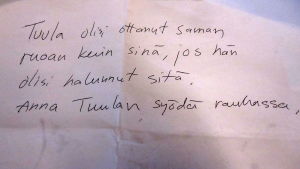 Tuula olisi ottanut saman
ruoan kuin sinä, jos hän
olisi halunnut sitä.
Anna Tuulan syödä rauhassa.